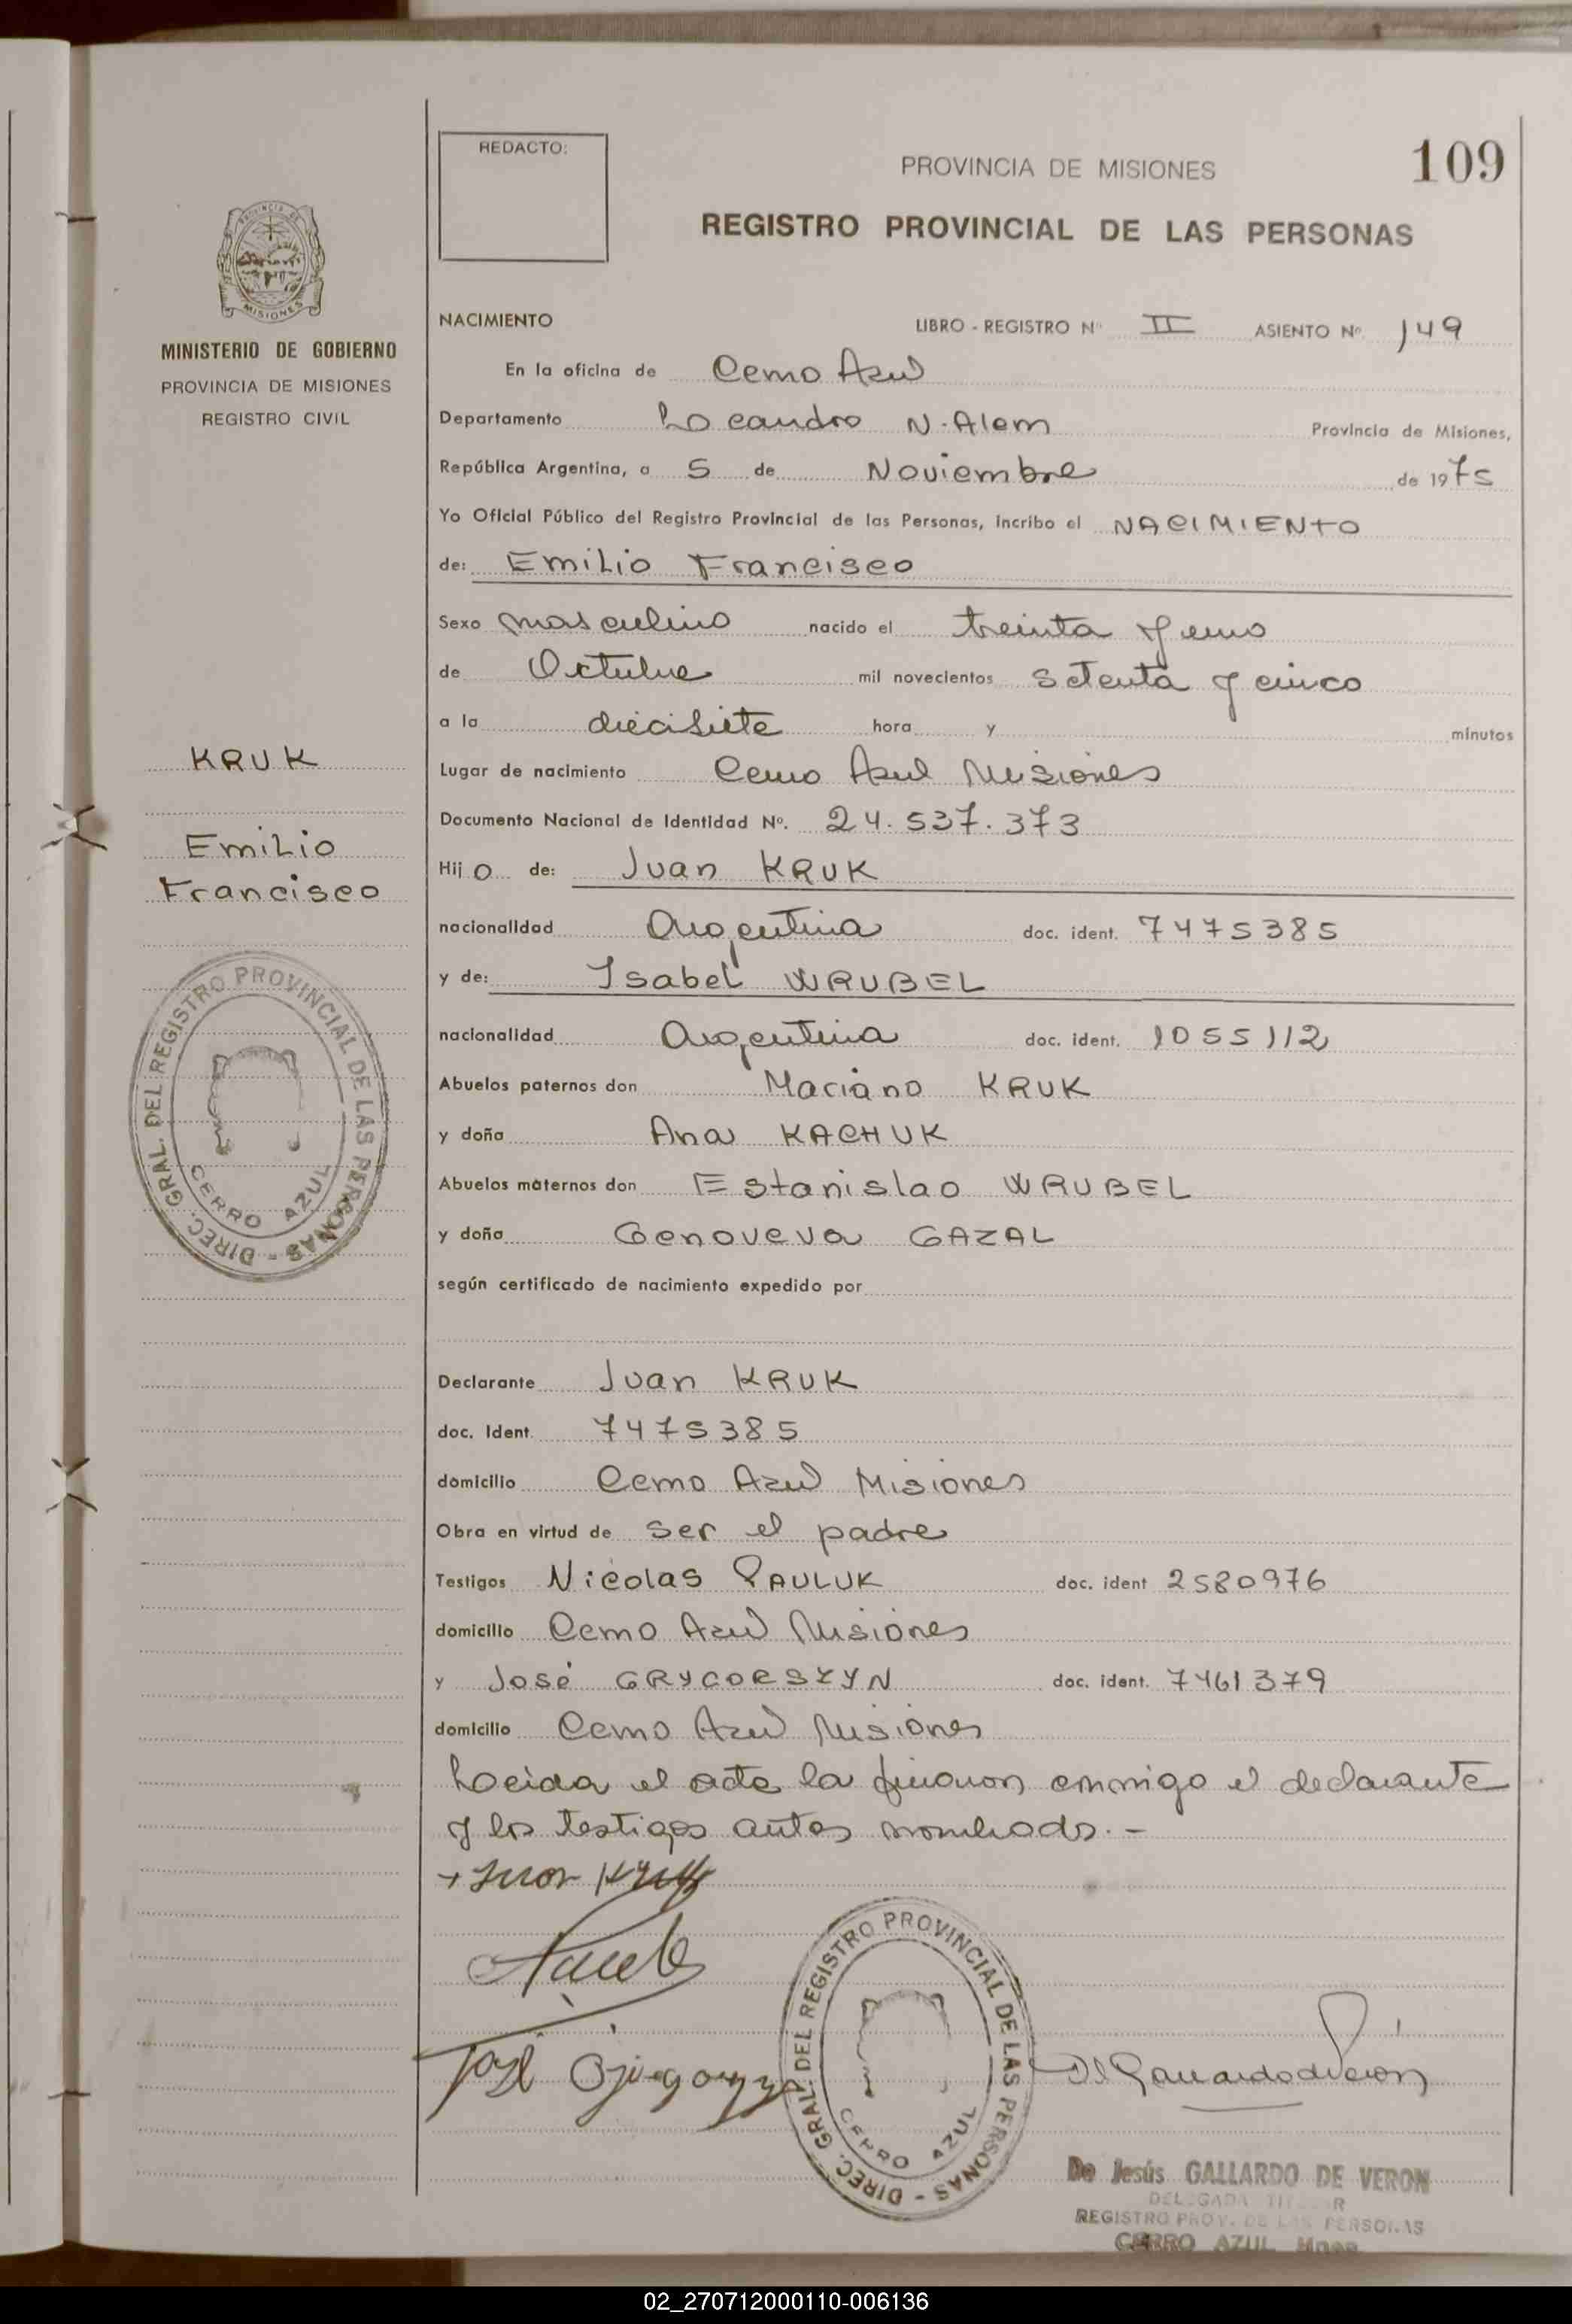 REDACTO:
PROVINCIA DE MISIONES
109
REGISTRO PROVINCIAL DE LAS PERSONAS
MISIONES
MINISTERIO DE GOBIERNO
PROVINCIA DE MISIONES
REGISTRO CIVIL
NACIMIENTO LIBRO - REGISTRO Nº II ASIENTO Nº 149
En la oficina de Cerro Azul
Departamento Leandro N. Alem Provincia de Misiones,
República Argentina, a 5 de Noviembre de 1975
Yo Oficial Público del Registro Provincial de las Personas, incribo el NACIMIENTO
de: Emilio Francisco
Sexo masculino nacido el treinta y uno
de Octubre mil novecientos setenta y cinco
a la diecisiete hora y minutos
Lugar de nacimiento Cerro Azul Misiones
Documento Nacional de Identidad Nº. 24.537.373
Hijo de: Juan KRUK
nacionalidad Argentina doc. ident. 7475385
y de: Isabel WRUBEL
nacionalidad Argentina doc. ident. 1055112
Abuelos paternos don Maciano KRUK
y doña Ana KACHUK
Abuelos maternos don Estanislao WRUBEL
y doña Genoveva GAZAL
según certificado de nacimiento expedido por
Declarante Juan KRUK
doc. Ident. 7475385
domicilio Cerro Azul Misiones
Obra en virtud de ser el padre
Testigos Nicolas PAULUK doc. ident 2580976
domicilio Cerro Azul Misiones
y José GRYGORSZYN doc. ident. 7461379
domicilio Cerro Azul Misiones
Leida el acta la firmaron conmigo el declarante
y los testigos antes nombrados.-
KRUK
Emilio
Francisco
DIREC. GRAL. DEL REGISTRO PROVINCIAL DE LAS PERSONAS -
CERRO AZUL
+ Juan Kruk
DIREC. GRAL. DEL REGISTRO PROVINCIAL DE LAS PERSONAS -
CERRO AZUL
De Jesús GALLARDO DE VERON
DELEGADA TITULAR
REGISTRO PROV. DE LAS PERSONAS
CERRO AZUL Mnes
02_270712000110-006136